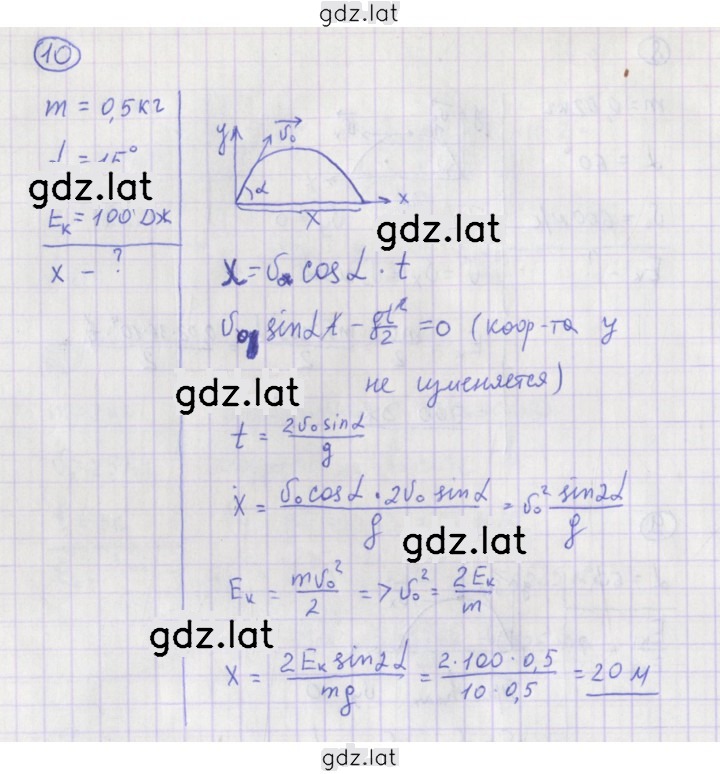 gdz.lat
10
m = 0,5 кг
α = 15°
gdz.lat
Eк = 100 Дж
x - ?
y
v₀
α
x
X
gdz.lat
X = v₀ cosα · t
v₀ sinα t - gt²/2 = 0 (коор-та y
не изменяется)
gdz.lat
t = 2v₀ sinα / g
X = v₀ cosα · 2v₀ sinα / g = v₀² sin2α / g
gdz.lat
Eк = mv₀²/2 => v₀² = 2Eк/m
gdz.lat
X = 2Eк sin2α / mg = 2·100·0,5 / 10·0,5 = 20 м
gdz.lat